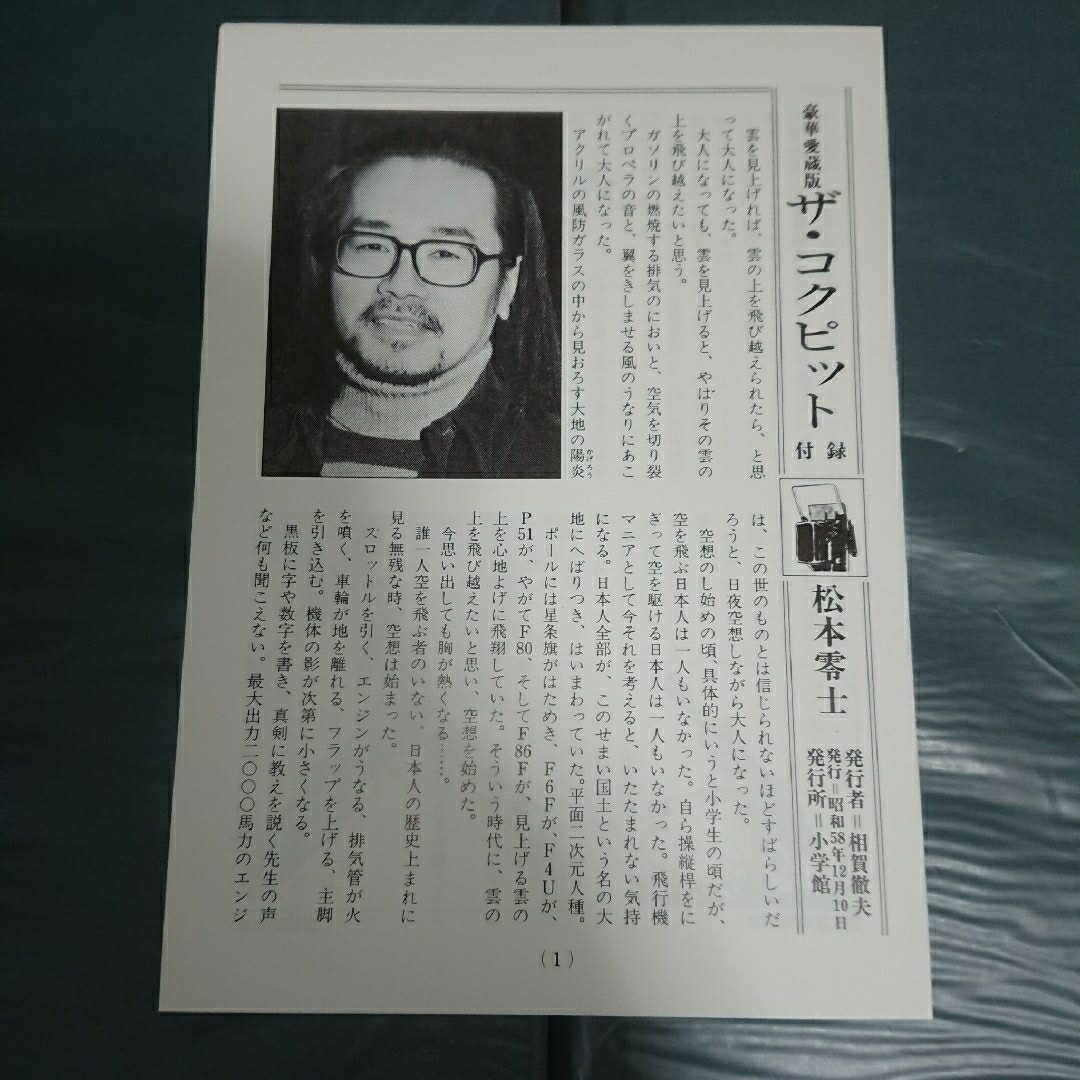 豪華愛蔵版
ザ・コクピット
付録
松本零士
発行者＝相賀徹夫
発行＝昭和58年12月10日
発行所＝小学館
雲を見上げれば、雲の上を飛び越えられたら、と思
って大人になった。
大人になっても、雲を見上げると、やはりその雲の
上を飛び越えたいと思う。
ガソリンの燃焼する排気のにおいと、空気を切り裂
くプロペラの音と、翼をきしませる風のうなりにあこ
がれて大人になった。
アクリルの風防ガラスの中から見おろす大地の陽炎
かげろう
は、この世のものとは信じられないほどすばらしいだ
ろうと、日夜空想しながら大人になった。
空想のし始めの頃、具体的にいうと小学生の頃だが、
空を飛ぶ日本人は一人もいなかった。自ら操縦桿をに
ぎって空を駆ける日本人は一人もいなかった。飛行機
マニアとして今それを考えると、いたたまれない気持
になる。日本人全部が、このせまい国土という名の大
地にへばりつき、はいまわっていた。平面二次元人種。
ポールには星条旗がはためき、F6Fが、F4Uが、
P51が、やがてF80、そしてF86Fが、見上げる雲の
上を心地よげに飛翔していた。そういう時代に、雲の
上を飛び越えたいと思い、空想を始めた。
今思い出しても胸が熱くなる……。
誰一人空を飛ぶ者のいない、日本人の歴史上まれに
見る無残な時、空想は始まった。
スロットルを引く、エンジンがうなる、排気管が火
を噴く、車輪が地を離れる、フラップを上げる、主脚
を引き込む。機体の影が次第に小さくなる。
黒板に字や数字を書き、真剣に教えを説く先生の声
など何も聞こえない。最大出力二〇〇〇馬力のエンジ
(1)